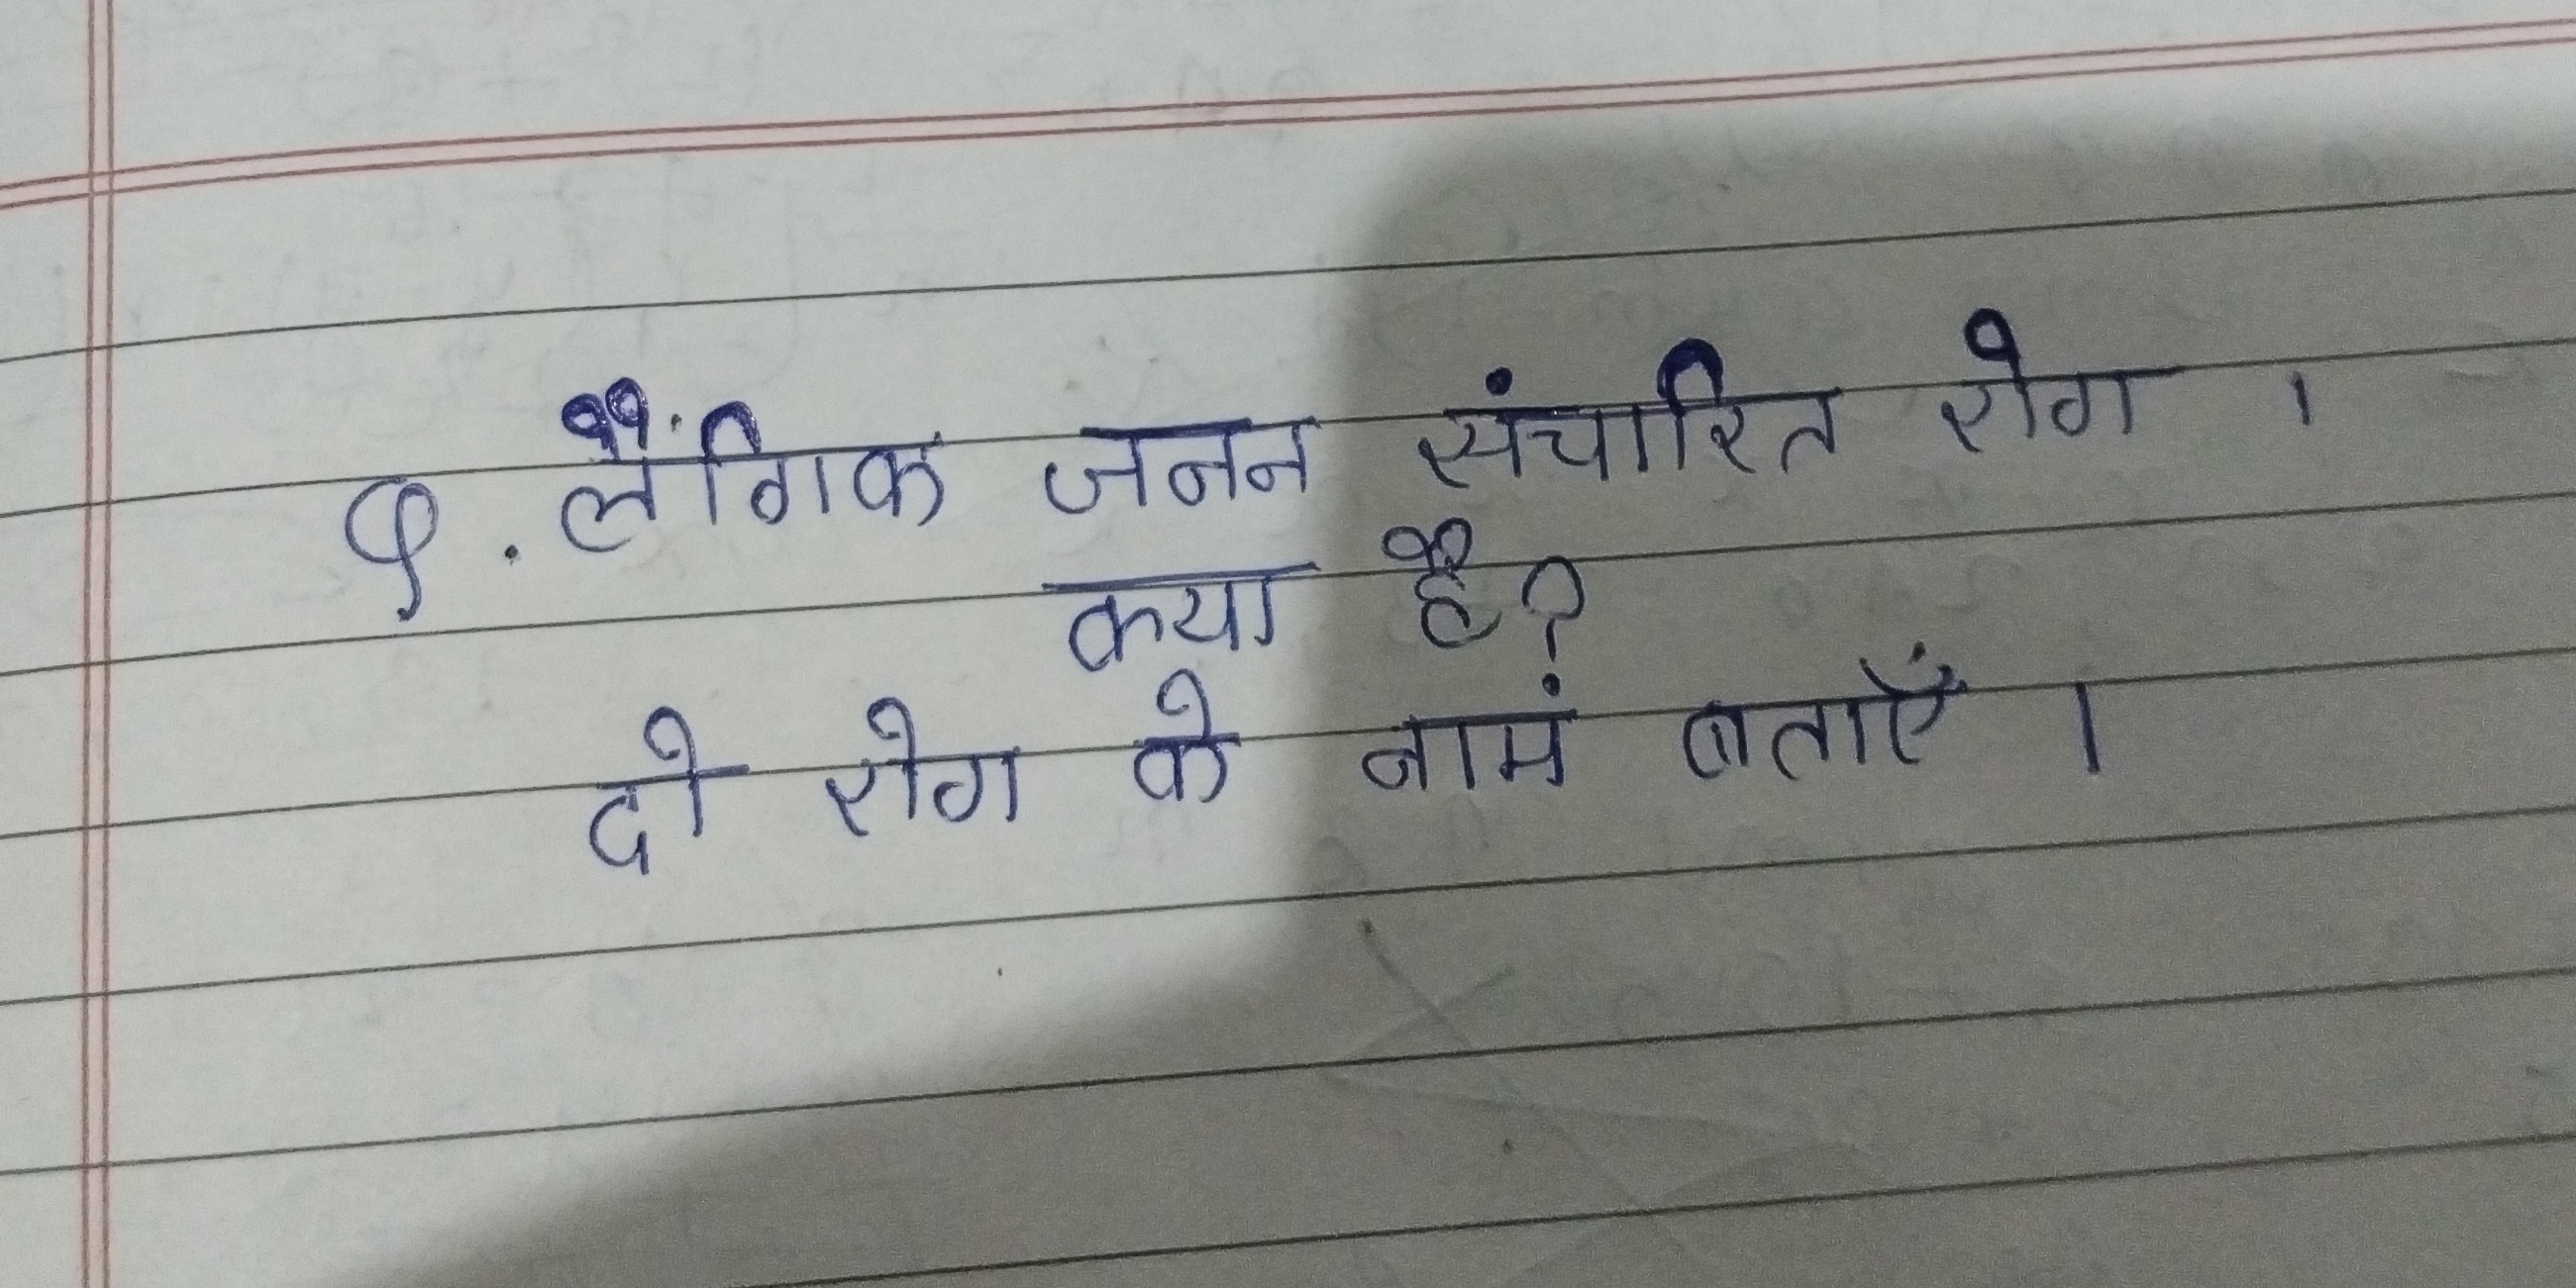 Q. लैंगिक जनन संचारित रोग ।
क्या है?
दो रोग के नामं बताएँ ।